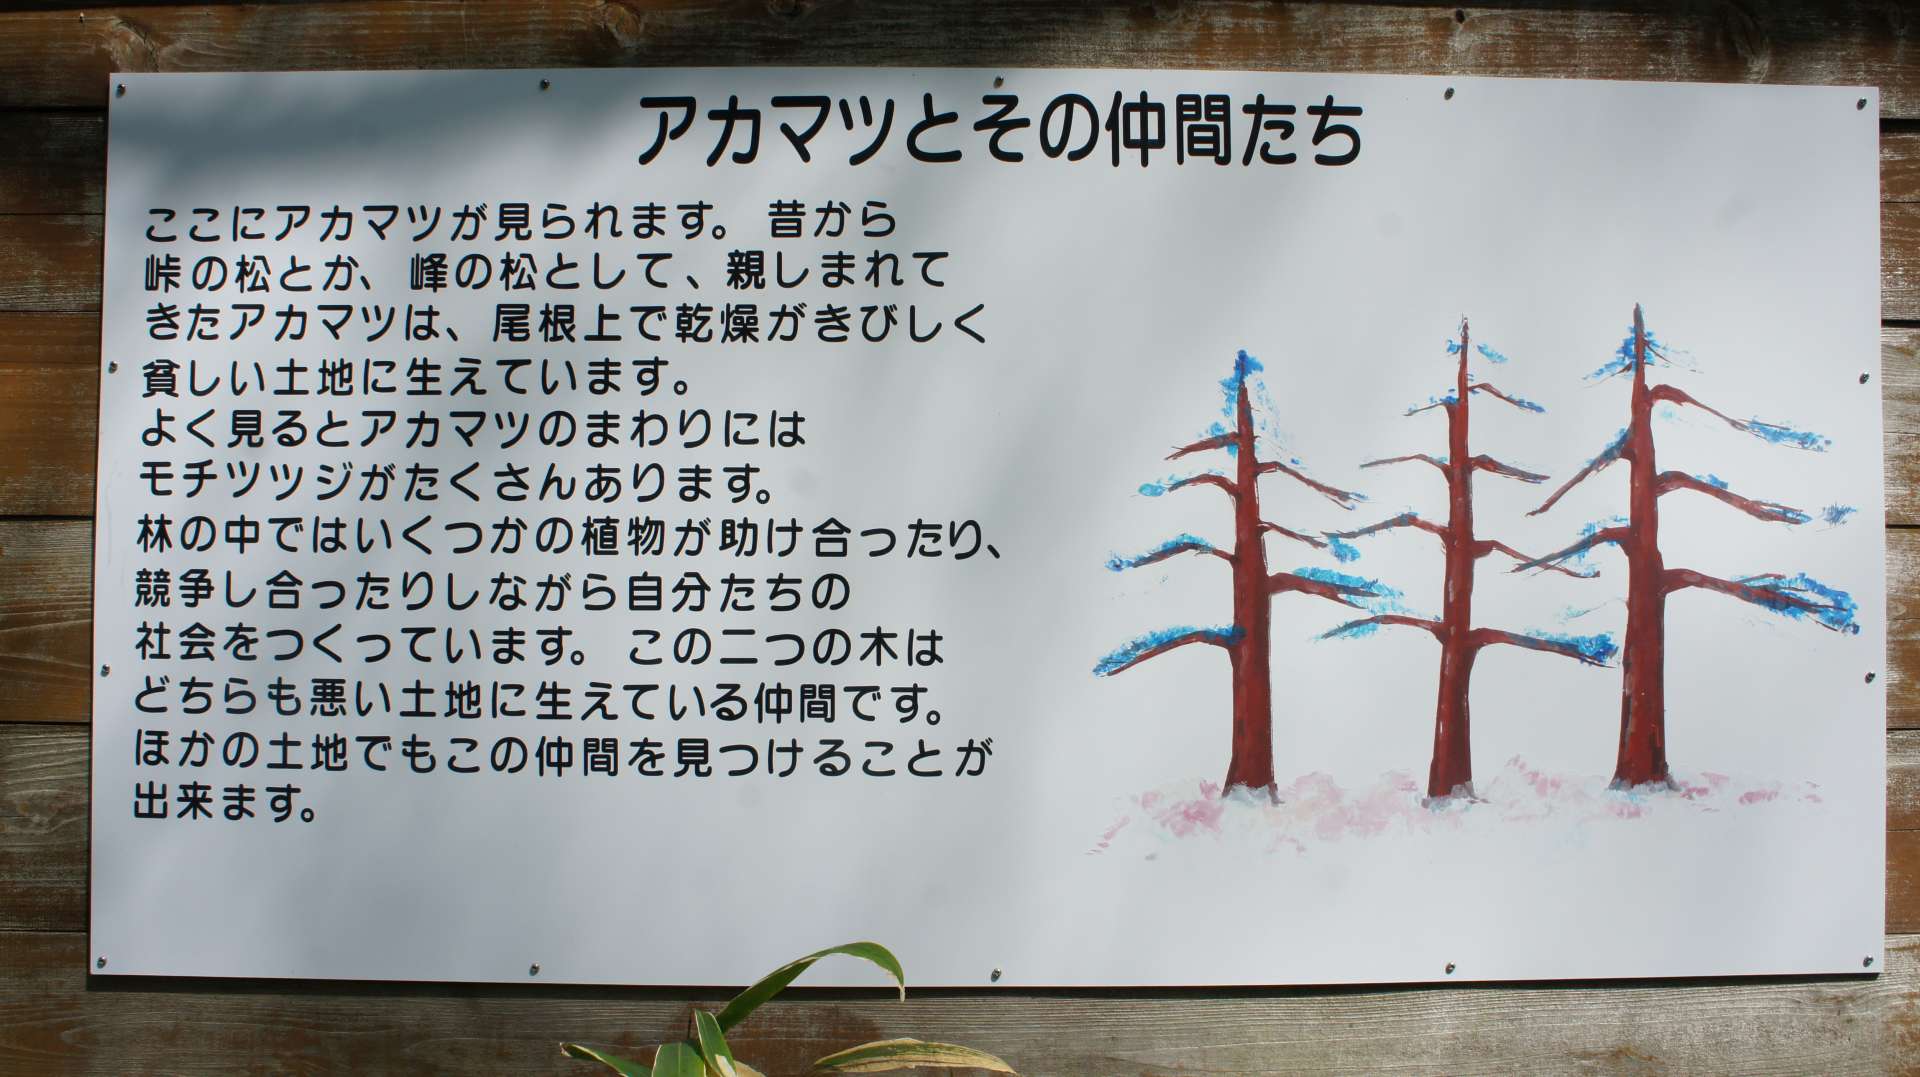 アカマツとその仲間たち
ここにアカマツが見られます。昔から
峠の松とか、峰の松として、親しまれて
きたアカマツは、尾根上で乾燥がきびしく
貧しい土地に生えています。
よく見るとアカマツのまわりには
モチツツジがたくさんあります。
林の中ではいくつかの植物が助け合ったり、
競争し合ったりしながら自分たちの
社会をつくっています。この二つの木は
どちらも悪い土地に生えている仲間です。
ほかの土地でもこの仲間を見つけることが
出来ます。